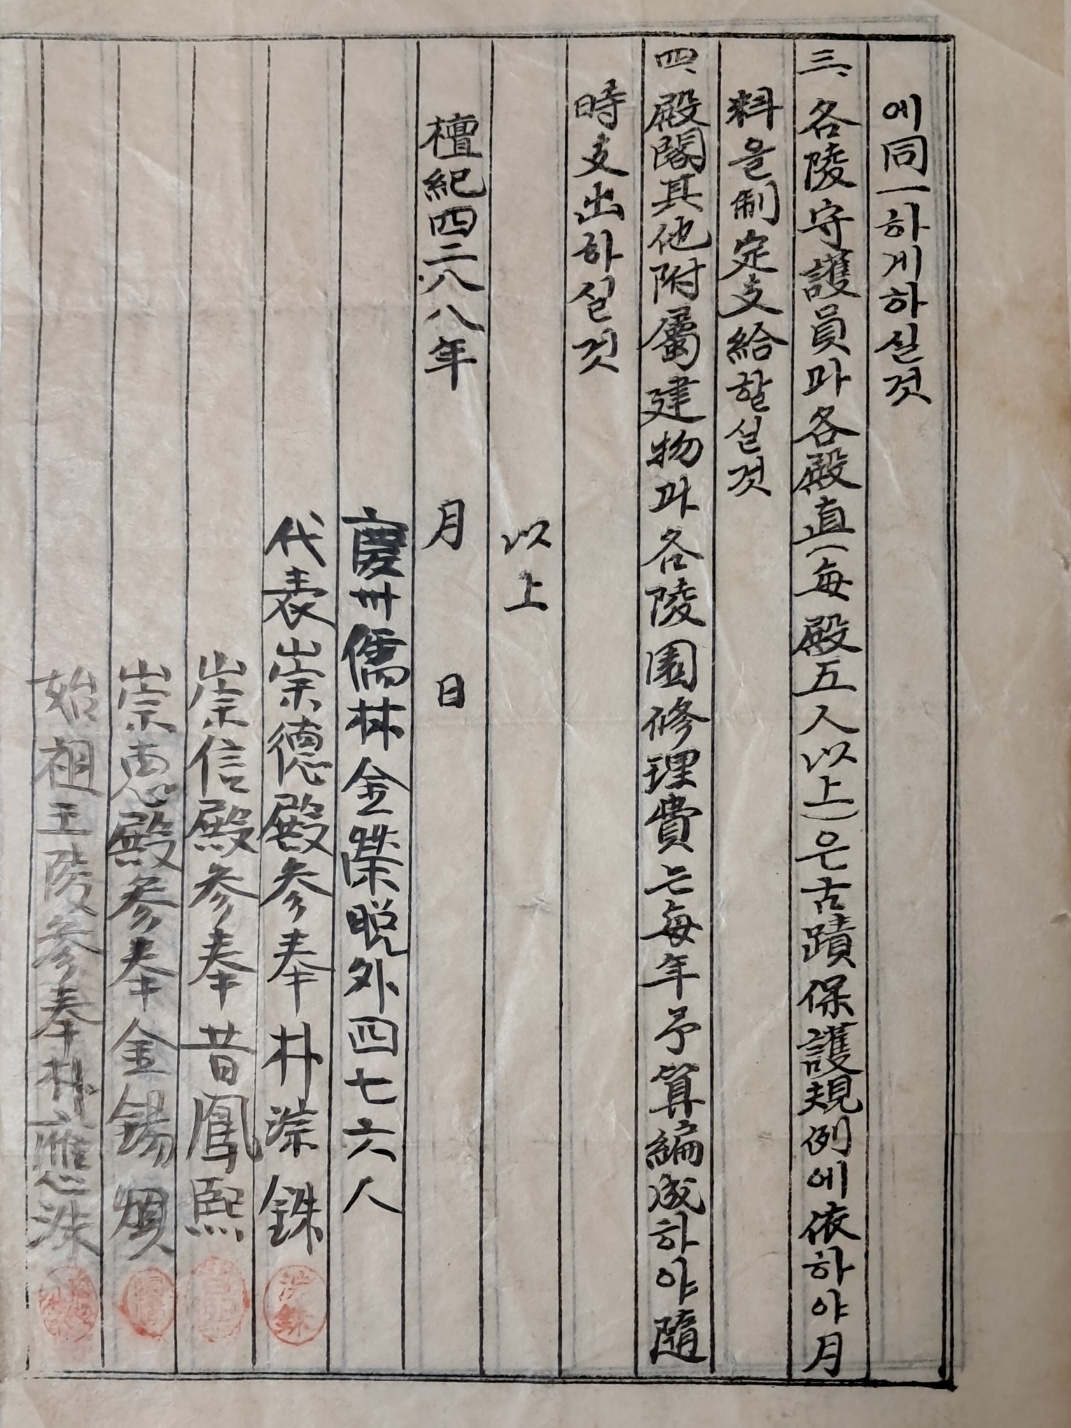 에同一하게하실것
三、各陵守護員과各殿直(每殿五人以上)은古蹟保護規例에依하야月
料을制定支給할실것
四、殿閣其他附屬建物과各陵園修理費는每年予算編成하야隨
時支出하실것
以上
檀紀四二八八年 月 日
慶州儒林金榮晩外四七六人
代表崇德殿参奉朴淙銖
崇信殿参奉昔鳳熙
崇惠殿参奉金錫煩
始祖王陵参奉朴應洙